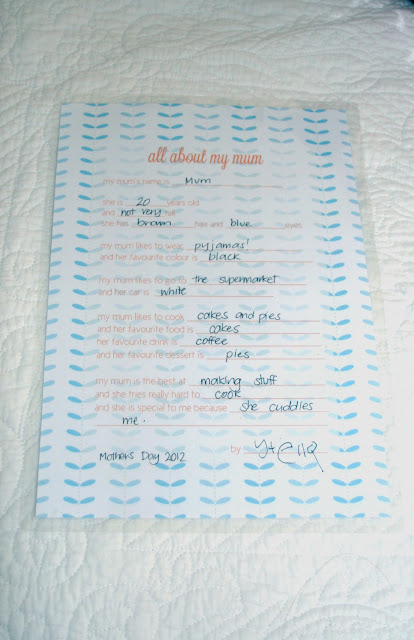 all about my mum
my mum's name is Mum
she is 20 years old
and not very tall
she has brown hair and blue eyes
my mum likes to wear pyjamas!
and her favourite colour is black
my mum likes to go to the supermarket
and her car is white
my mum likes to cook cakes and pies
and her favourite food is cakes
her favourite drink is coffee
and her favourite dessert is pies
my mum is the best at making stuff
and she tries really hard to cook
and she is special to me because she cuddles
me.
Mothers Day 2012 by